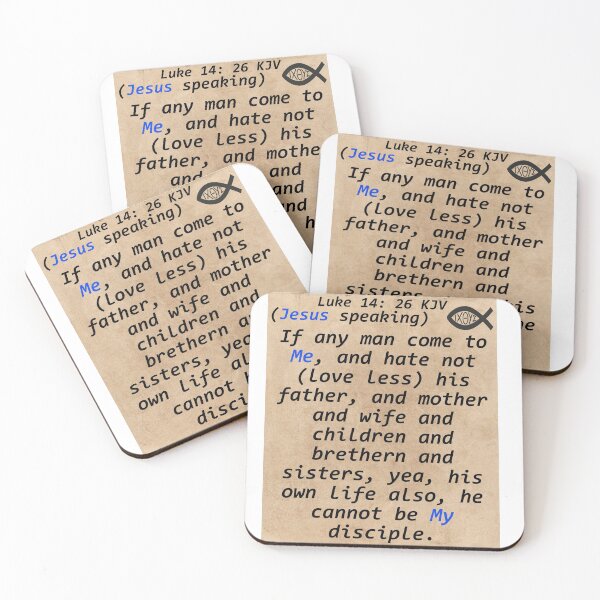 Luke 14: 26 KJV
(Jesus speaking)
If any man come to
Me, and hate not
(love less) his
father, and mother
and and
and
Luke 14: 26 KJV
(Jesus speaking)
If any man come to
Me, and hate not
(love less) his
father, and mother
and wife and
children and
brethern and
sisters
Luke 14: 26 KJV
(Jesus speaking)
If any man come to
Me, and hate not
(love less) his
father, and mother
and wife and
children and
brethern
sisters, yea,
own life also
cannot
Luke 14: 26 KJV
(Jesus speaking)
If any man come to
Me, and hate not
(love less) his
father, and mother
and wife and
children and
brethern and
sisters, yea, his
own life also, he
cannot be My
disciple.